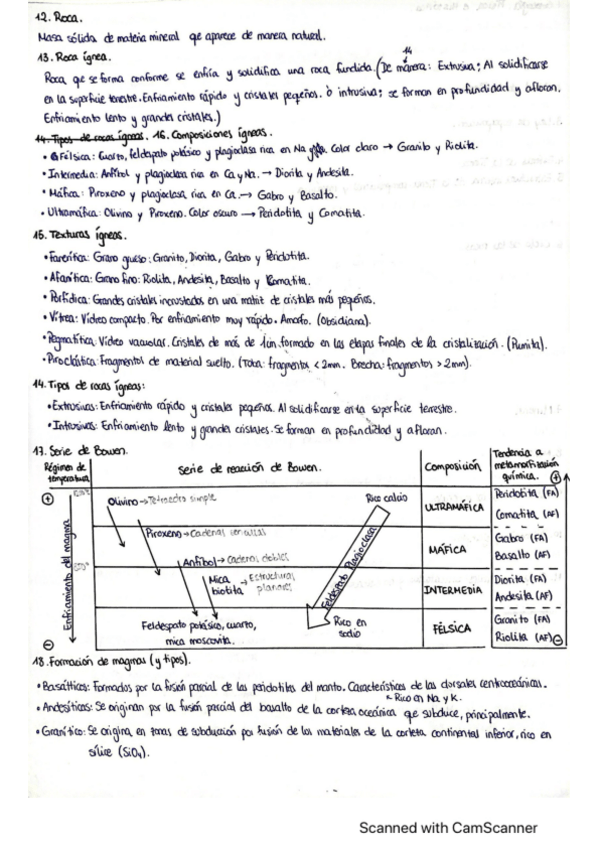 12. Roca.
Masa sólida de materia mineral que aparece de manera natural.
13. Roca ígnea.
14
Roca que se forma conforme se enfría y solidifica una roca fundida. (De manera: Extrusiva; Al solidificarse
en la superficie terrestre. Enfriamiento rápido y cristales pequeños. O intrusiva; se forman en profundidad y afloran.
Enfriamiento lento y grandes cristales.)
14. Tipos de rocas ígneas. 16. Composiciones ígneas.
• Félsica: Cuarzo, feldespato potásico y plagioclasa rica en Na. Color claro → Granito y Riolita.
• Intermedia: Anfíbol y plagioclasa rica en Ca y Na. → Diorita y Andesita.
• Máfica: Piroxeno y plagioclasa rica en Ca. → Gabro y Basalto.
• Ultramáfica: Olivino y Piroxeno. Color oscuro → Peridotita y Comatita.
15. Texturas ígneas.
• Fanerítica: Grano grueso: Granito, Diorita, Gabro y Peridotita.
• Afanítica: Grano fino: Riolita, Andesita, Basalto y Comatita.
• Porfídica: Grandes cristales incrustados en una matriz de cristales más pequeños.
• Vítrea: Vidrio compacto. Por enfriamiento muy rápido. Amorfo. (Obsidiana).
• Pegmatítica: Vidrio vacuolar. Cristales de más de 1cm. formado en las etapas finales de la cristalización. (Pumita).
• Piroclástica: Fragmentos de material suelto. (Toba: fragmentos < 2mm. Brecha: fragmentos > 2mm).
14. Tipos de rocas ígneas:
• Extrusivas: Enfriamiento rápido y cristales pequeños. Al solidificarse en la superficie terrestre.
• Intrusivas: Enfriamiento lento y grandes cristales. Se forman en profundidad y afloran.
17. Serie de Bowen.
Régimen de temperatura
Serie de reacción de Bowen.
Composición
Tendencia a metamorfización química.
+
+
Enfriamiento del magma
Olivino → Tetraedro simple
Rico calcio
ULTRAMÁFICA
Peridotita (FA)
Comatita (AF)
Piroxeno → Cadenas sencillas
MÁFICA
Gabro (FA)
Basalto (AF)
Anfíbol → Cadenas dobles
Feldespato Plagioclasa
Mica biotita → Estructuras planares
INTERMEDIA
Diorita (FA)
Andesita (AF)
Feldespato potásico, cuarzo,
mica moscovita.
Rico en sodio
FÉLSICA
Granito (FA)
Riolita (AF)
-
-
18. Formación de magmas (y tipos).
• Basálticos: Formados por la fusión parcial de las peridotitas del manto. Características de las dorsales centrooceánicas.
Rico en Na y K.
• Andesíticos: Se originan por la fusión parcial del basalto de la corteza oceánica que subduce, principalmente.
• Granítico: Se origina en zonas de subducción por fusión de los materiales de la corteza continental inferior, rico en
sílice (SiO₄).
Scanned with CamScanner